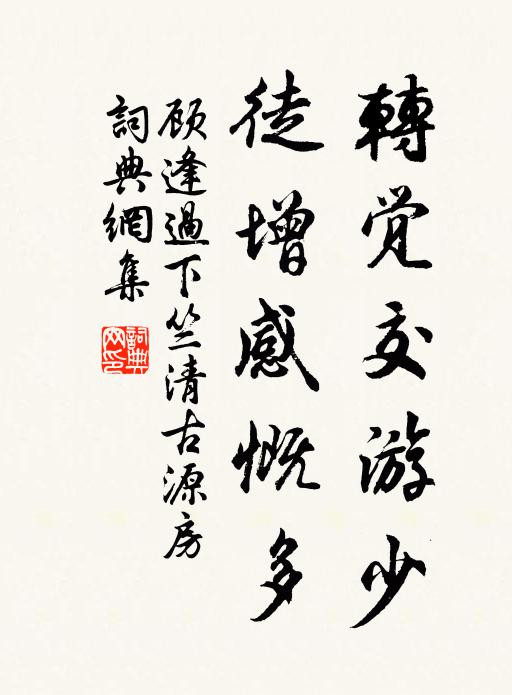 轉覺交游少
徒增感慨多
顾逢過下竺清古源房
詞典網集
詞典網印